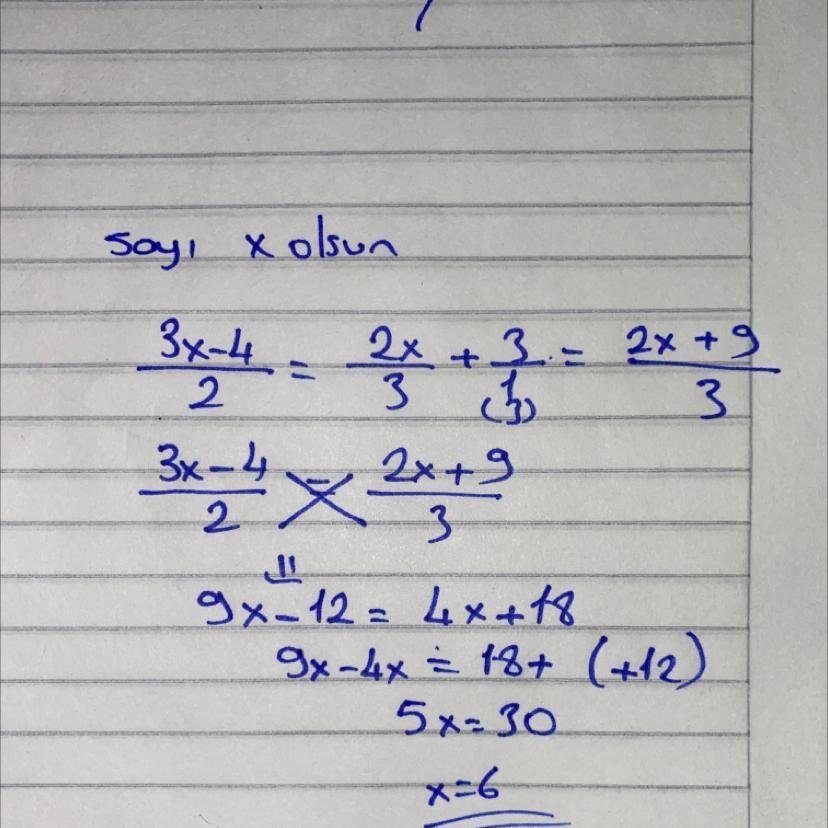 sayı x olsun
3x-4/2 = 2x/3 + 3/1 (3) = 2x+9/3
3x-4/2 = 2x+9/3
9x-12 = 4x+18
9x-4x = 18+ (+12)
5x=30
x=6